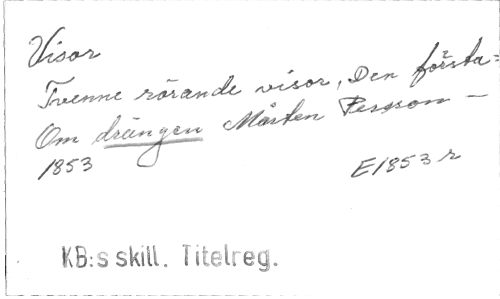 Visor
Tvenne rörande visor, Den första=
Om drängen Mårten Persson —
1853 E1853 r
KB:s skill. Titelreg.